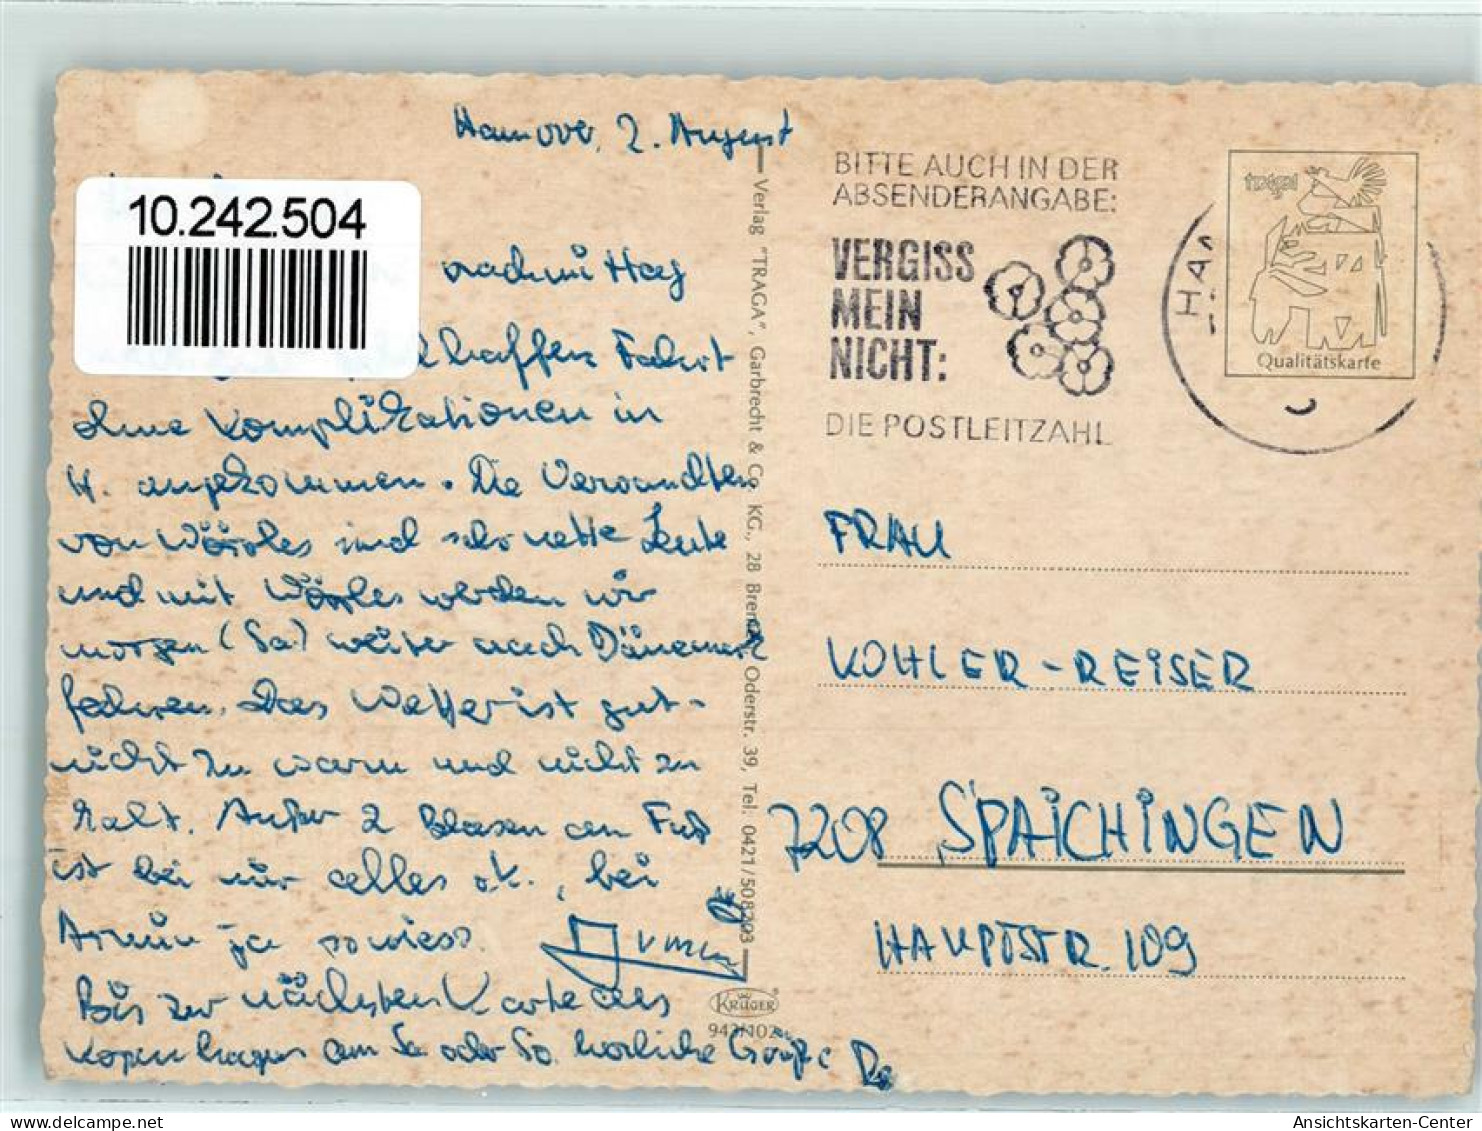 Hannover, 2. August
10.242.504
nachmittag
Fahrt
ohne Komplikationen in
H. angekommen. Die Verwandten
von Wörles sind sehr nette Leute
und mit Wörles werden wir
morgen (Sa) weiter nach Dänemark
fahren. Das Wetter ist gut -
nicht zu warm und nicht zu
kalt. Außer 2 Blasen am Fuß
ist bei mir alles o.k., bei
Armin ja sowieso.
Armin
Bis zur nächsten Karte aus
Kopenhagen am Sa oder So. herzliche Grüße
Verlag "TRAGA", Garbrecht & Co. KG., 28 Bremen, Oderstr. 39, Tel. 0421/508203
KRÜGER
BITTE AUCH IN DER
ABSENDERANGABE:
VERGISS
MEIN
NICHT:
DIE POSTLEITZAHL
HA
traga
Qualitätskarte
FRAU
KOHLER-REISER
7208 SPAICHINGEN
HAUPTSTR. 109
AnsichtsKarten-Center